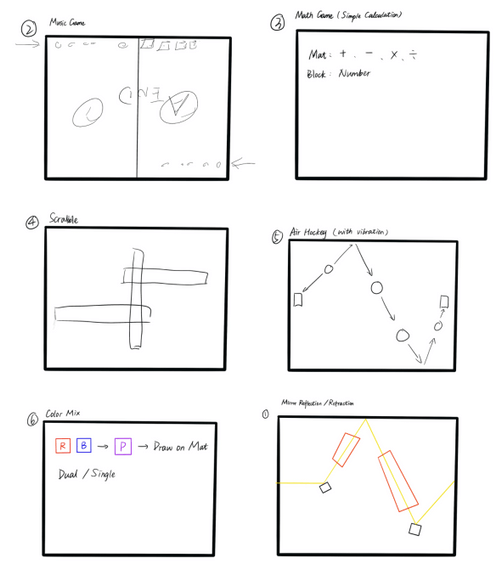 ② Music Game
③ Math Game (Simple Calculation)
Mat: + . - . × . ÷
Block: Number
④ Scrabble
⑤ Air Hockey (with vibration)
⑥ Color Mix
R B → P → Draw on Mat
Dual / Single
① Mirror Reflection / Refraction